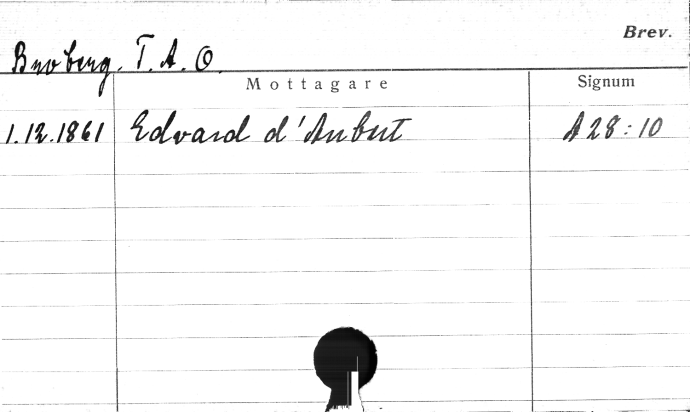 Brev.
Broberg. T. A. O.
Mottagare Signum
1.12.1861 Edvard d'Aubert A 28:10